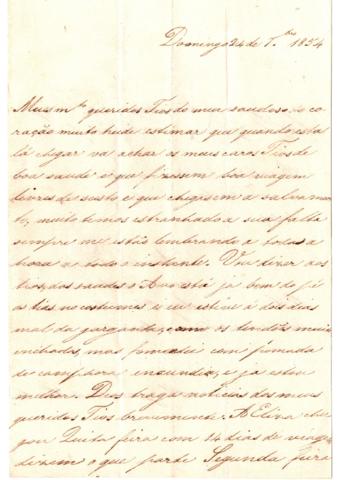 Domingo 24 de 7.bro 1854
Meus m.to queridos Tios do meu saudoso co
ração muito heide estimar que quando esta
lá chegar va achar os meus caros Tios de
boa saude e que fizessem boa viagem
livres de susto e que chegasem a salvamen
to, muito temos estranhado a sua falta
sempre me estão lembrando a todas a
hora a todo o instante. Vou dizer aos
tios, das saudes o Avo está já bom do pé
as tias no costume e eu estive á dois dias
mal da garganta, com os bendos muito
enchados, mas fomentei com pomada
de camphora encundia, e já estou
melhor. Deos traga noticias dos meus
queridos Tios brevemente. A Eliza che
gou Quita feira com 14 dias de viagem
dizem o que parte Segunda feira